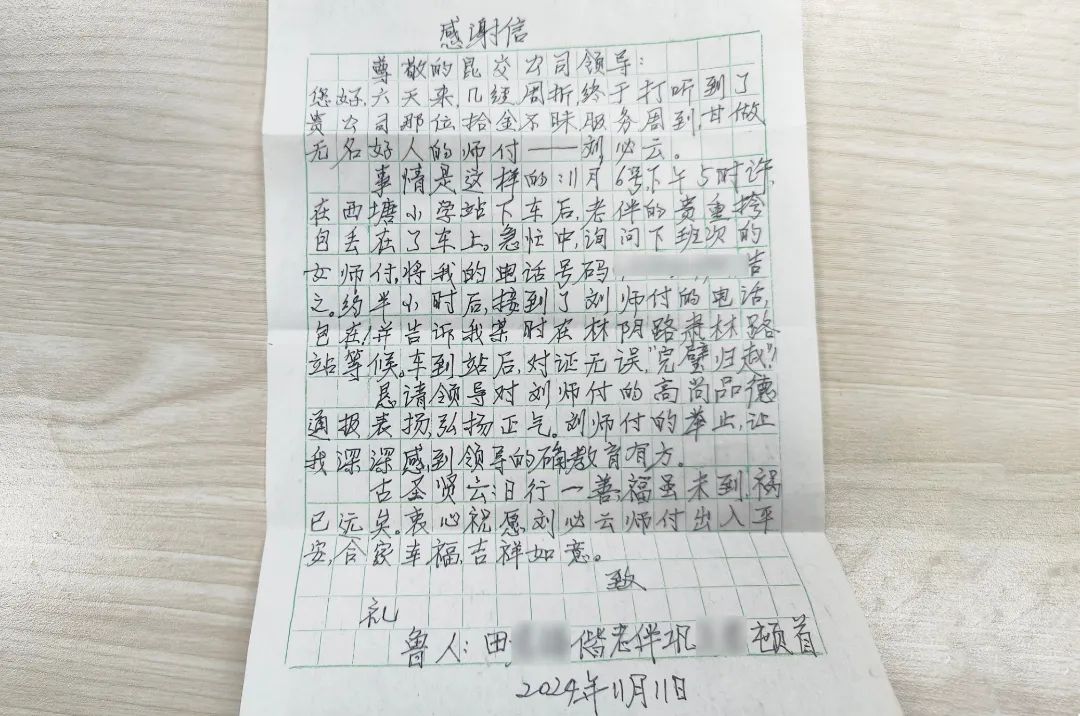 感谢信
尊敬的昆交公司领导：
您好，六天来，几经周折，终于打听到了
贵公司那位拾金不昧，服务周到，甘做
无名好人的师付——刘必云。
事情是这样的：11月6号下午5时许，
在西塘小学站下车后，老伴的贵重挎
包丢在了车上。急忙中，询问下班次的
女师付，将我的电话号码 告
之。约半小时后，接到了刘师付的电话，
包在！并告诉我某时在林阴路泰林路
站等候。车到站后，对证无误，“完璧归赵”！
恳请领导对刘师付的高尚品德
通报表扬，弘扬正气。刘师付的举止，让
我深深感到领导的确教育有方。
古圣贤云：日行一善，福虽未到，祸
已远矣。衷心祝愿刘必云师付出入平
安，合家幸福，吉祥如意。
致
礼
鲁人：田 偕老伴巩 顿首
2024年11月11日